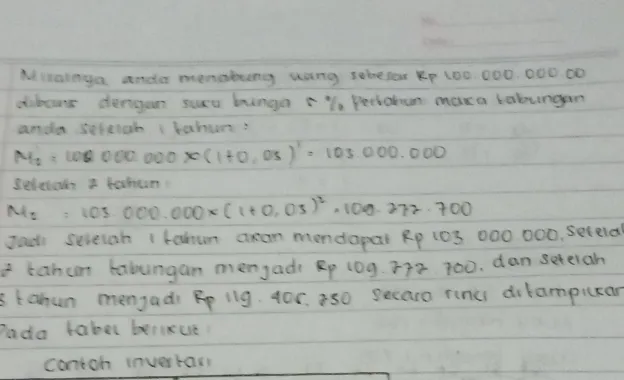 Misalnya anda menabung uang sebesar Rp 100.000.000 00
dibank dengan suku bunga % pertahun maka tabungan
anda setelah 1 tahun :
M₁ = 100 000 000 × (1+0,03)¹ = 103.000.000
Setelah 2 tahun :
M₂ = 103 000.000 × (1+0,03)² = 109.272.700
Jadi setelah 1 tahun akan mendapat Rp 103 000 000, setelah
2 tahun tabungan menjadi Rp 109.272 700, dan setelah
3 tahun menjadi Rp 119.406.250 secara rinci ditampilkan
Pada tabel berikut :
Contoh invertasi